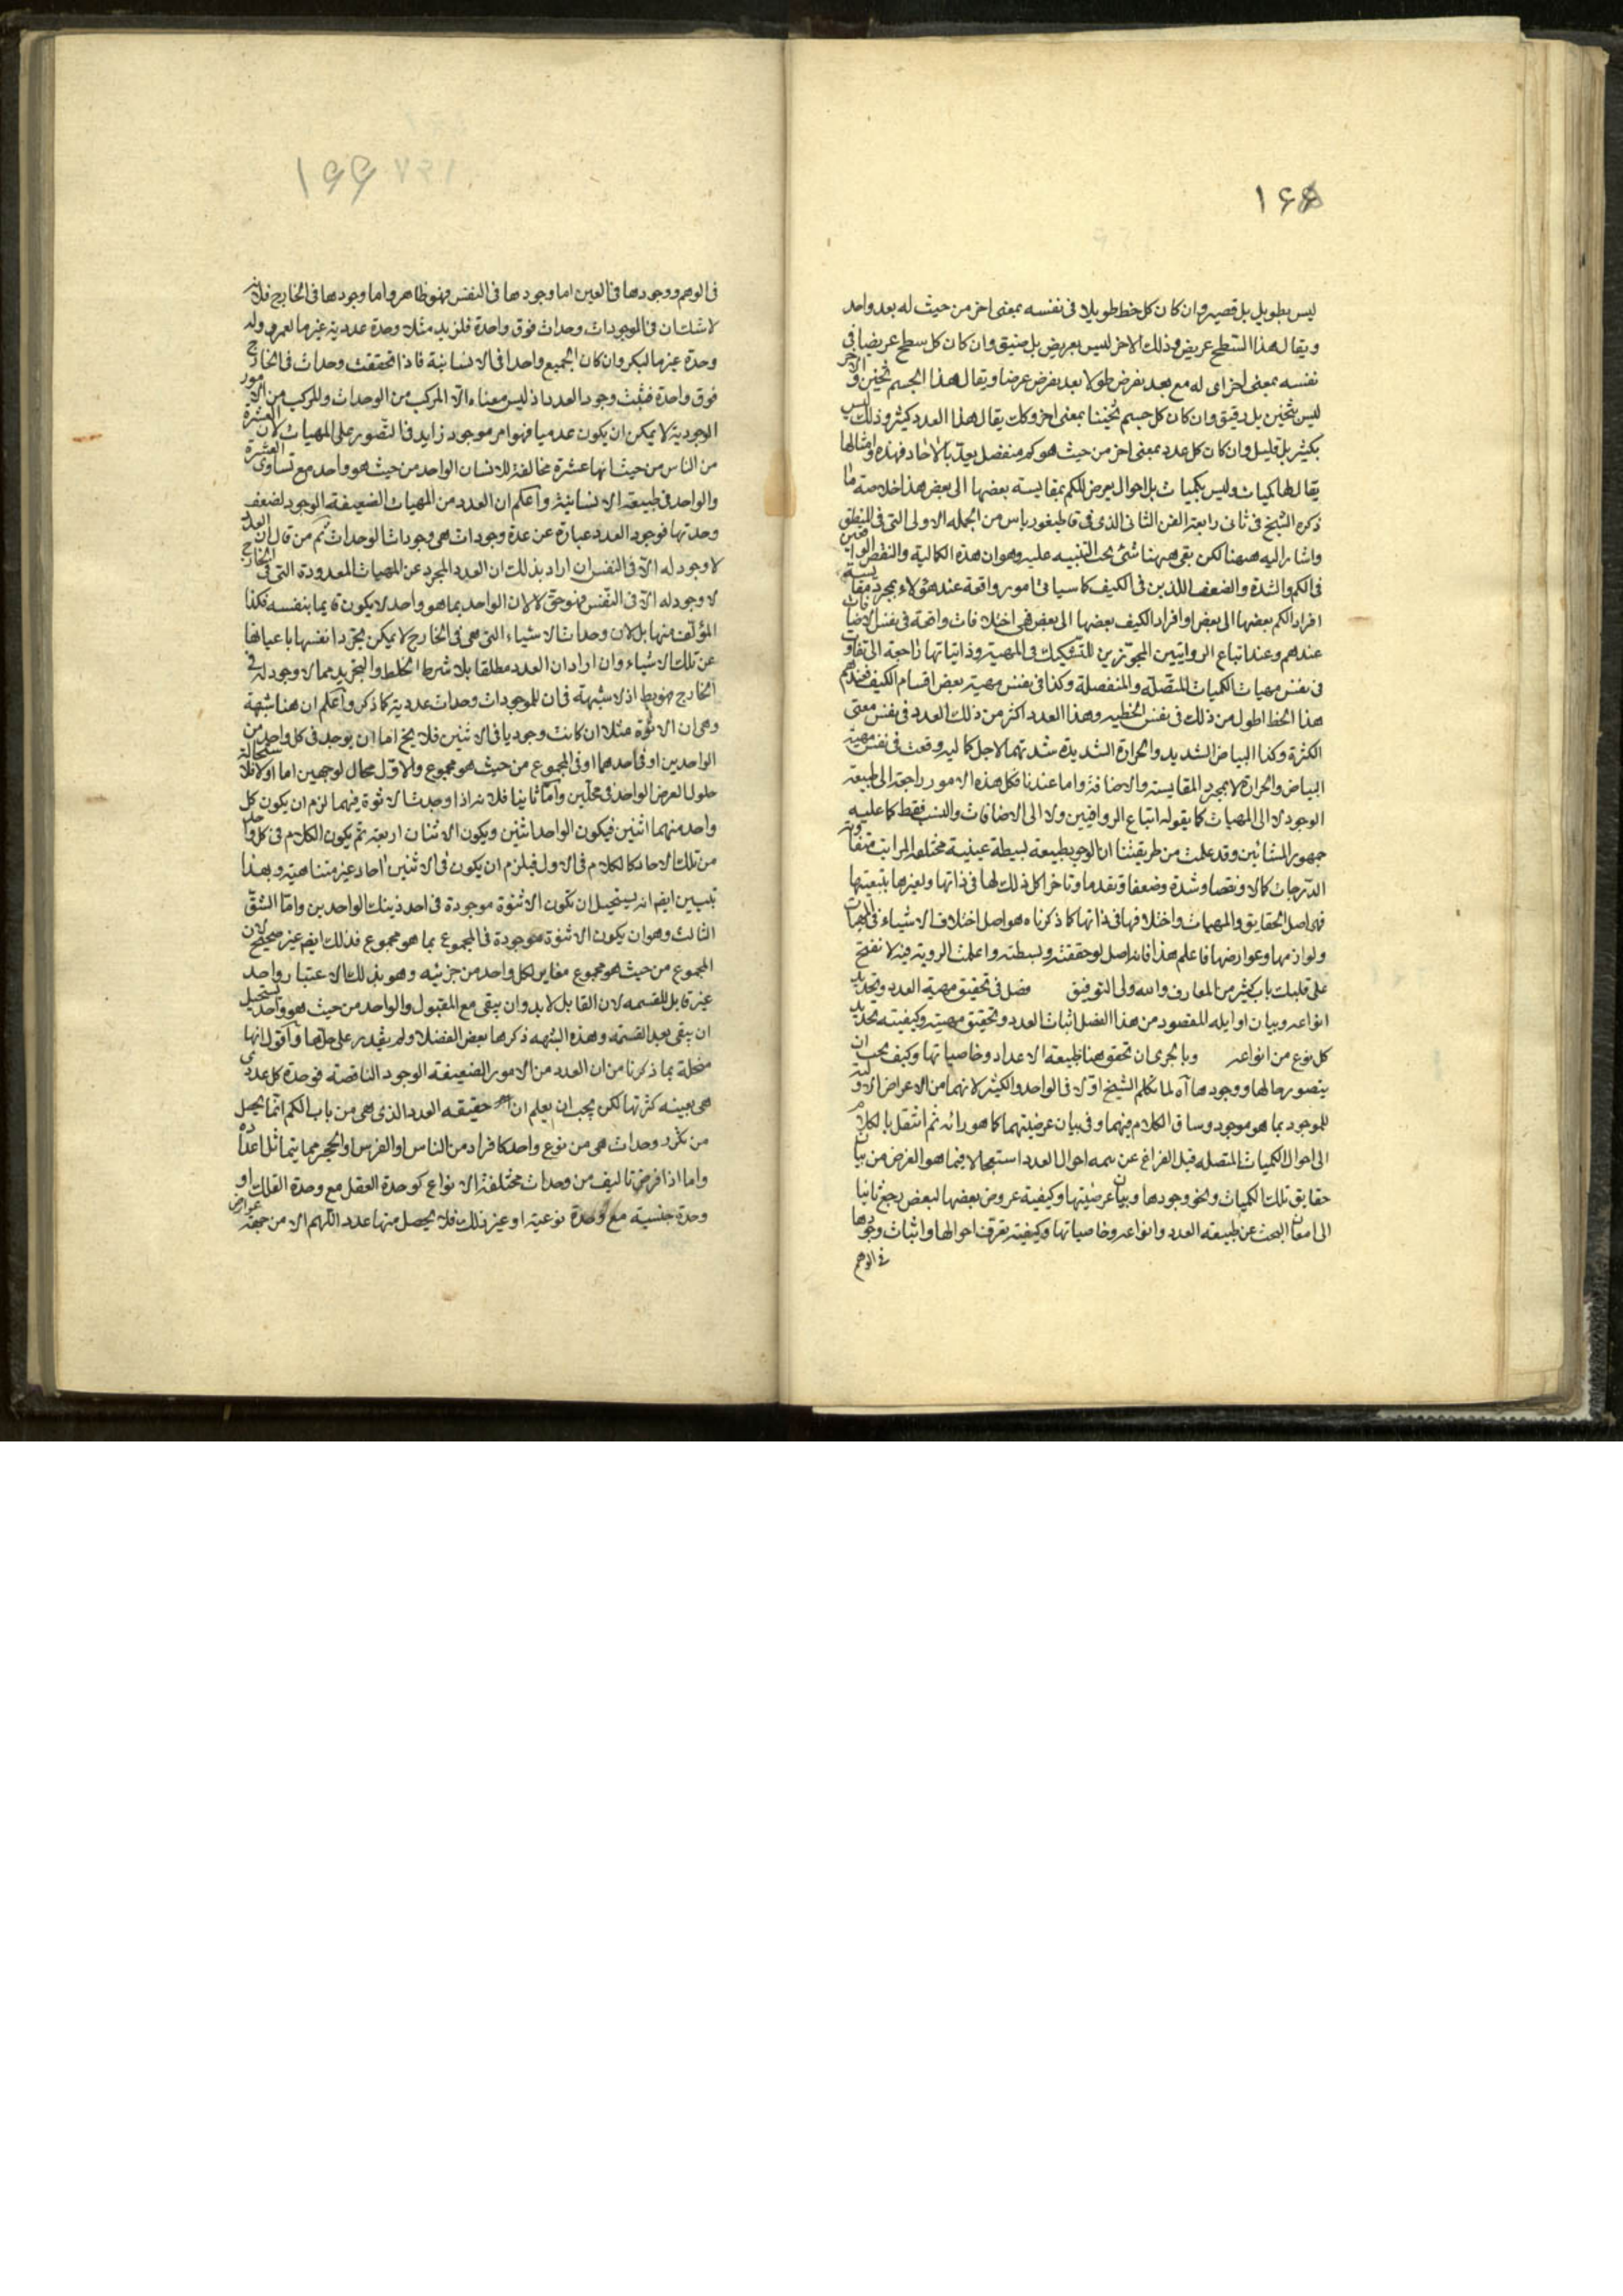 ١٦٥
ليس بطويل بل قصير وان كان كل خط طويلا فى نفسه بمعنى اخر من حيث له بعد واحد
ويقال لهذا السطح عريض وذلك الاخر ليس بعريض بل ضيق وان كان كل سطح عريضا فى
نفسه بمعنى اخر اى له مع بعد يفرض طولا بعد يفرض عرضا ويقال لهذا الجسم ثخين والاخر
ليس بثخين بل دقيق وان كان كل جسم ثخينا بمعنى اخر وكك يقال لهذا العدد كثير وذلك ليس
بكثير بل قليل وان كان كل عدد بمعنى اخر من حيث هو كم منفصل يعد بالآحاد فهذه وامثالها
يقال لها كميات وليس بكميات بل احوال يعرض للكم بمقايسته بعضها الى بعض هذا خلاصة ما
ذكره الشيخ فى ثانى رابعة الفن الثانى الذى فى قاطيغورياس من الجمله الاولى التى فى المنطق
واشار اليه ههنا لكن بقى ههنا شئ يجب التنبيه عليه وهو ان هذه الكمالية والنقص الواقعين
فى الكم والشدة والضعف اللذين فى الكيف كما سياتى امور واقعة عند هؤلاء بمجرد مقايسة
افراد الكم بعضها الى بعض او افراد الكيف بعضها الى بعض فهى اختلافات واقعة فى نفس الاضافات
عندهم وعند اتباع الرواقيين المجوزين للتشكيك فى المهية وذاتياتها راجعة الى تفاوت
فى نفس مهيات الكميات المتصلة والمنفصلة وكذا فى نفس مهية بعض اقسام الكيف فعندهم
هذا الخط اطول من ذلك فى نفس الخطيه وهذا العدد اكثر من ذلك العدد فى نفس معنى
الكثرة وكذا البياض الشديد والحرارة الشديدة شدتهما لاجل كماليه وقعت فى نفس مهية
البياض والحرارة لا بمجرد المقايسة والاضافة واما عندنا فكل هذه الامور راجعة الى طبيعة
الوجود لا الى المهيات كما يقوله اتباع الرواقيين ولا الى الاضافات والنسب فقط كما عليه
جمهور المشائين وقد علمت من طريقتنا ان الوجود طبيعة بسيطة عينية مختلفه المراتب متفاوتة
الدرجات كمالا ونقصا وشدة وضعفا وتقدما وتاخرا كل ذلك لها فى ذاتها ولغيرها بتبعيتها
فهى اصل الحقايق والمهيات واختلافها فى ذاتها كما ذكرناه هو اصل اختلاف الاشياء فى المهيات
ولوازمها وعوارضها فاعلم هذا فانه اصل لو حققته وبسطته واعملت الروية فيه لانفتح
على قلبك باب كثير من المعارف والله ولى التوفيق فصل فى تحقيق مهية العدد وتحديد
انواعه وبيان اوايله المقصود من هذا الفصل اثبات العدد وتحقيق مهيته وكيفيته تحديد
كل نوع من انواعه وبالحرى ان تحقق ههنا طبيعة الاعداد وخاصياتها وكيف يجب ان
يتصور حالها ووجودها آه لما تكلم الشيخ اولا فى الواحد والكثير لانهما من الاعراض الاولية
للموجود بما هو موجود وساق الكلام فيهما وفى بيان عرضيتهما كما هو رائه ثم انتقل بالكلام
الى احوال الكميات المتصله قبل الفراغ عن تتمه احوال العدد استعجالا فيما هو الغرض من بيان
حقايق تلك الكميات ونحو وجودها وبيان عرضيتها وكيفية عروض بعضها لبعض رجع ثانيا
الى امعان البحث عن طبيعة العدد وانواعه وخاصياتها وكيفيته تعرف احوالها واثبات وجودها
فى الوهم
١٦٦
فى الوهم ووجودها فى العين اما وجودها فى النفس فهو ظاهر واما وجودها فى الخارج فلانه
لا شك ان فى الموجودات وحدات فوق واحدة فلزيد مثلا وحدة عددية غير ما لعمرو وله
وحدة غير ما لبكر وان كان الجميع واحدا فى الانسانية فاذا تحققت وحدات فى الخارج
فوق واحدة فثبت وجود العدد اذ ليس معناه الا المركب من الوحدات والمركب من الامور
الوجودية لا يمكن ان يكون عدميا فهو امر موجود زايد فى التصور على المهيات لان العشرة
من الناس من حيث انها عشرة مخالفة للانسان الواحد من حيث هو واحد مع تساوى العشرة
والواحد فى طبيعة الانسانية واعلم ان العدد من المهيات الضعيفة الوجود لضعف
وحدتها فوجود العدد عبارة عن عدة وجودات هى وجودات الوحدات ثم من قال ان العدد
لا وجود له الا فى النفس ان اراد بذلك ان العدد المجرد عن المهيات المعدودة التى فى الخارج
لا وجود له الا فى النفس فهو حق لا لان الواحد بما هو واحد لا يكون قايما بنفسه فكذا
المؤلف منها بل لان وحدات الاشياء التى هى فى الخارج لا يمكن تجرد انفسها باعيانها
عن تلك الاشياء وان اراد ان العدد مطلقا بلا شرط الخلط والتجريد مما لا وجود له فى
الخارج فهو بط اذ لا شبهة فى ان للموجودات وحدات عددية كما ذكر واعلم ان هنا شبهة
وهى ان الاثنوة مثلا ان كانت وجوديا فى الاثنين فلا يخ اما ان يوجد فى كل واحد من
الواحدين او فى احدهما او فى المجموع من حيث هو مجموع والاول محال لوجهين اما اولا فلاستحالة
حلول العرض الواحد فى محلين واما ثانيا فلانه اذا وجدت الاثنوة فيهما لزم ان يكون كل
واحد منهما اثنين فيكون الواحد اثنين ويكون الاثنان اربعة ثم يكون الكلام فى كل واحد
من تلك الاحاد كالكلام فى الاول فيلزم ان يكون فى الاثنين آحاد غير متناهية وبهذا
تبين ايضا انه يستحيل ان تكون الاثنوة موجودة فى احد ذينك الواحدين واما الشق
الثالث وهو ان يكون الاثنوة موجودة فى المجموع بما هو مجموع فذلك ايضا غير صحيح لان
المجموع من حيث هو مجموع مغاير لكل واحد من جزئيه وهو بذلك الاعتبار واحد
غير قابل للقسمه لان القابل لا بد وان يبقى مع المقبول والواحد من حيث هو واحد يستحيل
ان يبقى بعد القسمة وهذه الشبهه ذكرها بعض الفضلا ولم يقدر على حلها واقول انها
منحلة بما ذكرنا من ان العدد من الامور الضعيفة الوجود الناقصة فوحدة كل عدد
هى بعينه كثرتها لكن يجب ان يعلم ان حقيقه العدد الذى هى من باب الكم انما يحصل
من تكرر وحدات هى من نوع واحد كافراد من الناس او الفرس او الحجر مما يتماثل اعداده
واما اذا فرض تاليف من وحدات مختلفة الانواع كوحدة العقل مع وحدة الفلك او
وحدة جنسية مع وحدة نوعية او غير ذلك فلا يحصل منها عدد اللهم الا من جهة عوارض